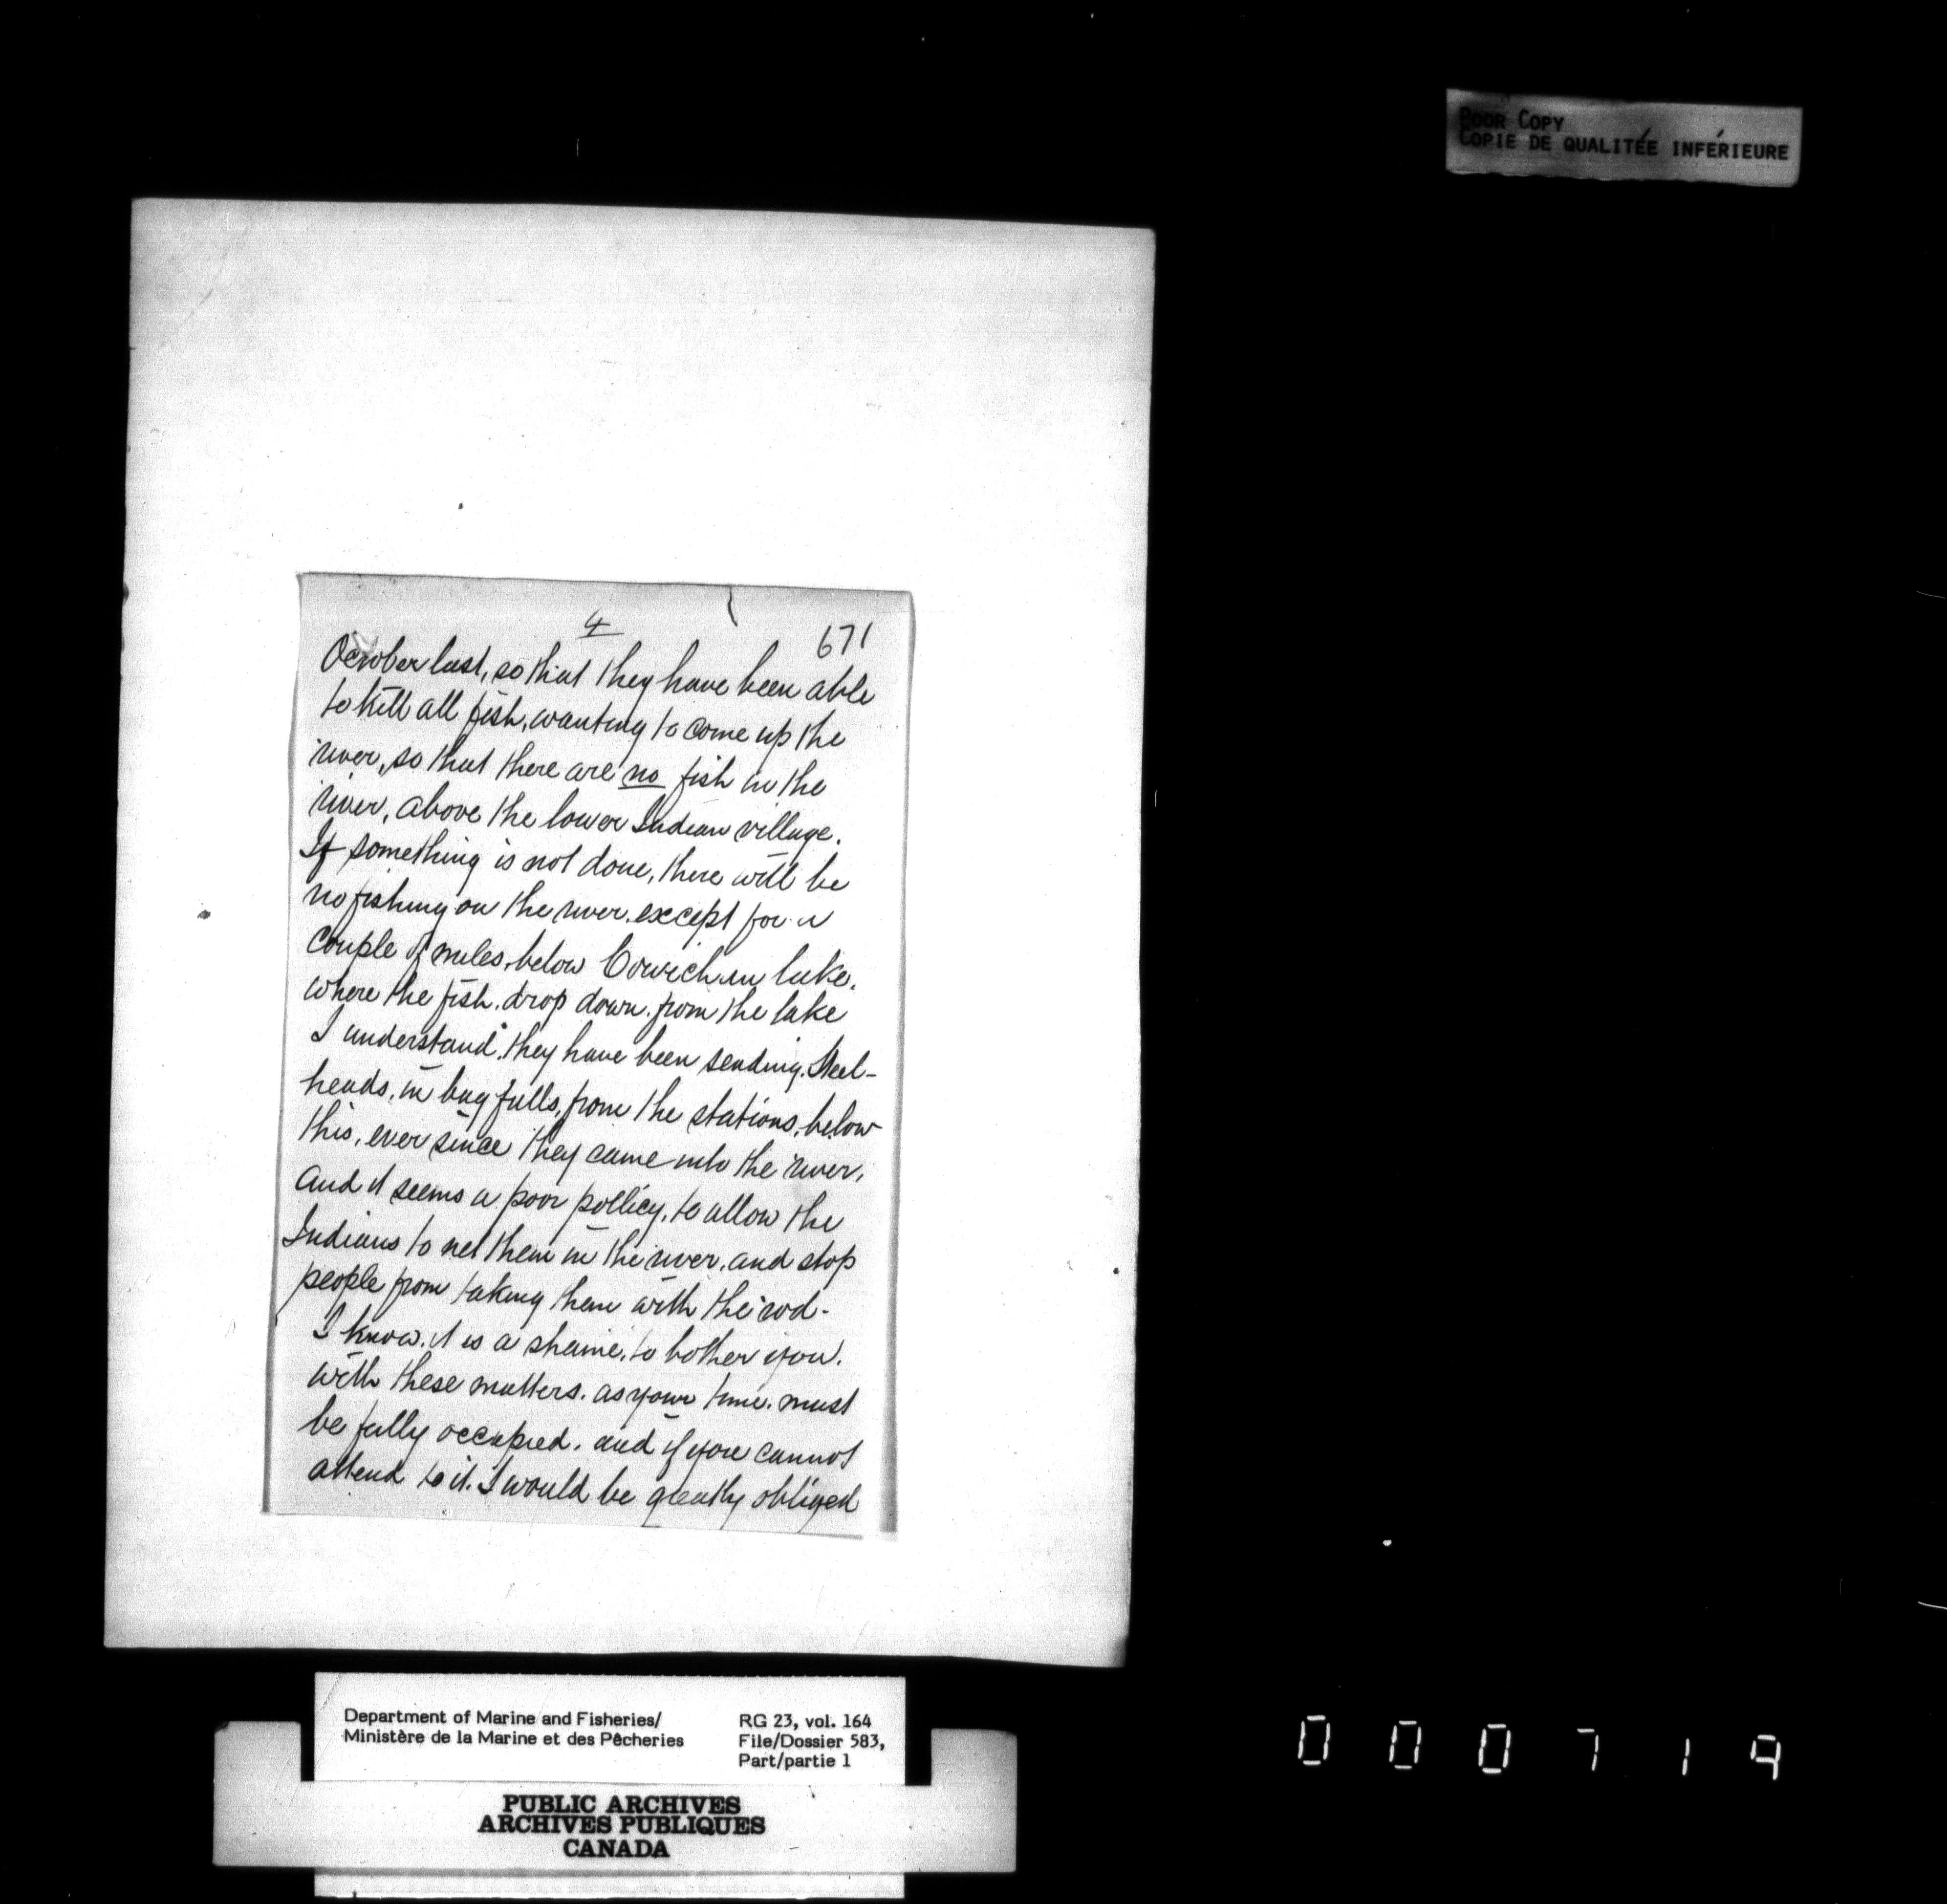 POOR COPY
COPIE DE QUALITÉE INFÉRIEURE
4
671
October last, so that they have been able
to kill all fish, wanting to come up the
river, so that there are no fish in the
river, above the lower Indian village.
If something is not done, there will be
no fishing on the river. except for a
couple of miles, below Cowichan lake.
where the fish. drop down. from the lake
I understand. they have been sending. Steel-
heads. in bag fulls, from the stations. below
this, ever since they came into the river,
and it seems a poor pollicy, to allow the
Indians to net them in the river. and stop
people from taking them with the rod-
I know. it is a shame. to bother you.
with these matters. as your time. must
be fully occupied. and if you cannot
attend to it. I would be greatly obliged
Department of Marine and Fisheries/
Ministère de la Marine et des Pêcheries
RG 23, vol. 164
File/Dossier 583,
Part/partie 1
PUBLIC ARCHIVES
ARCHIVES PUBLIQUES
CANADA
000719